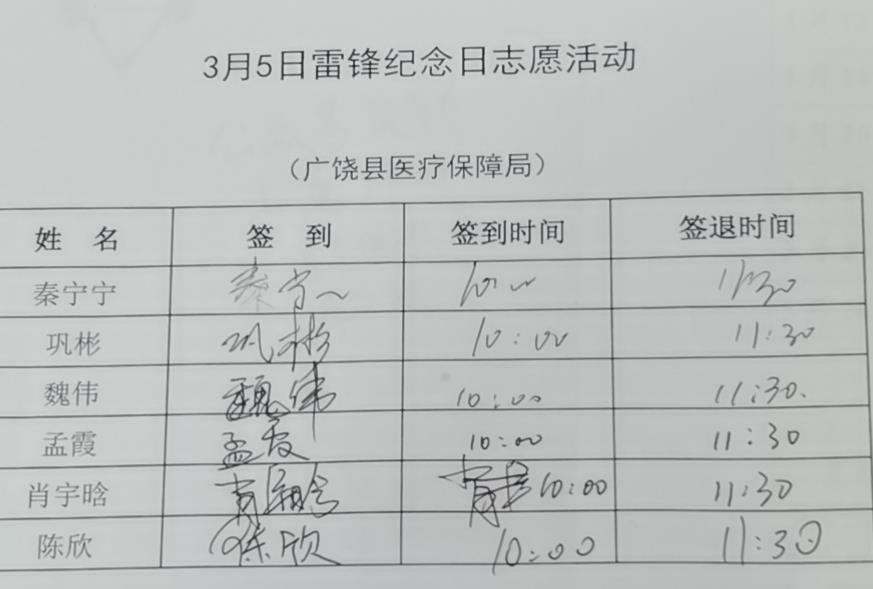 3月5日雷锋纪念日志愿活动
（广饶县医疗保障局）
姓 名 签 到 签到时间 签退时间
秦宁宁 秦宁~ 11:30
巩彬 巩彬 10:00 11:30
魏伟 魏伟 10:00 11:30.
孟霞 孟霞 10:00 11:30
肖宇晗 肖宇晗 10:00 11:30
陈欣 陈欣 10:00 11:30